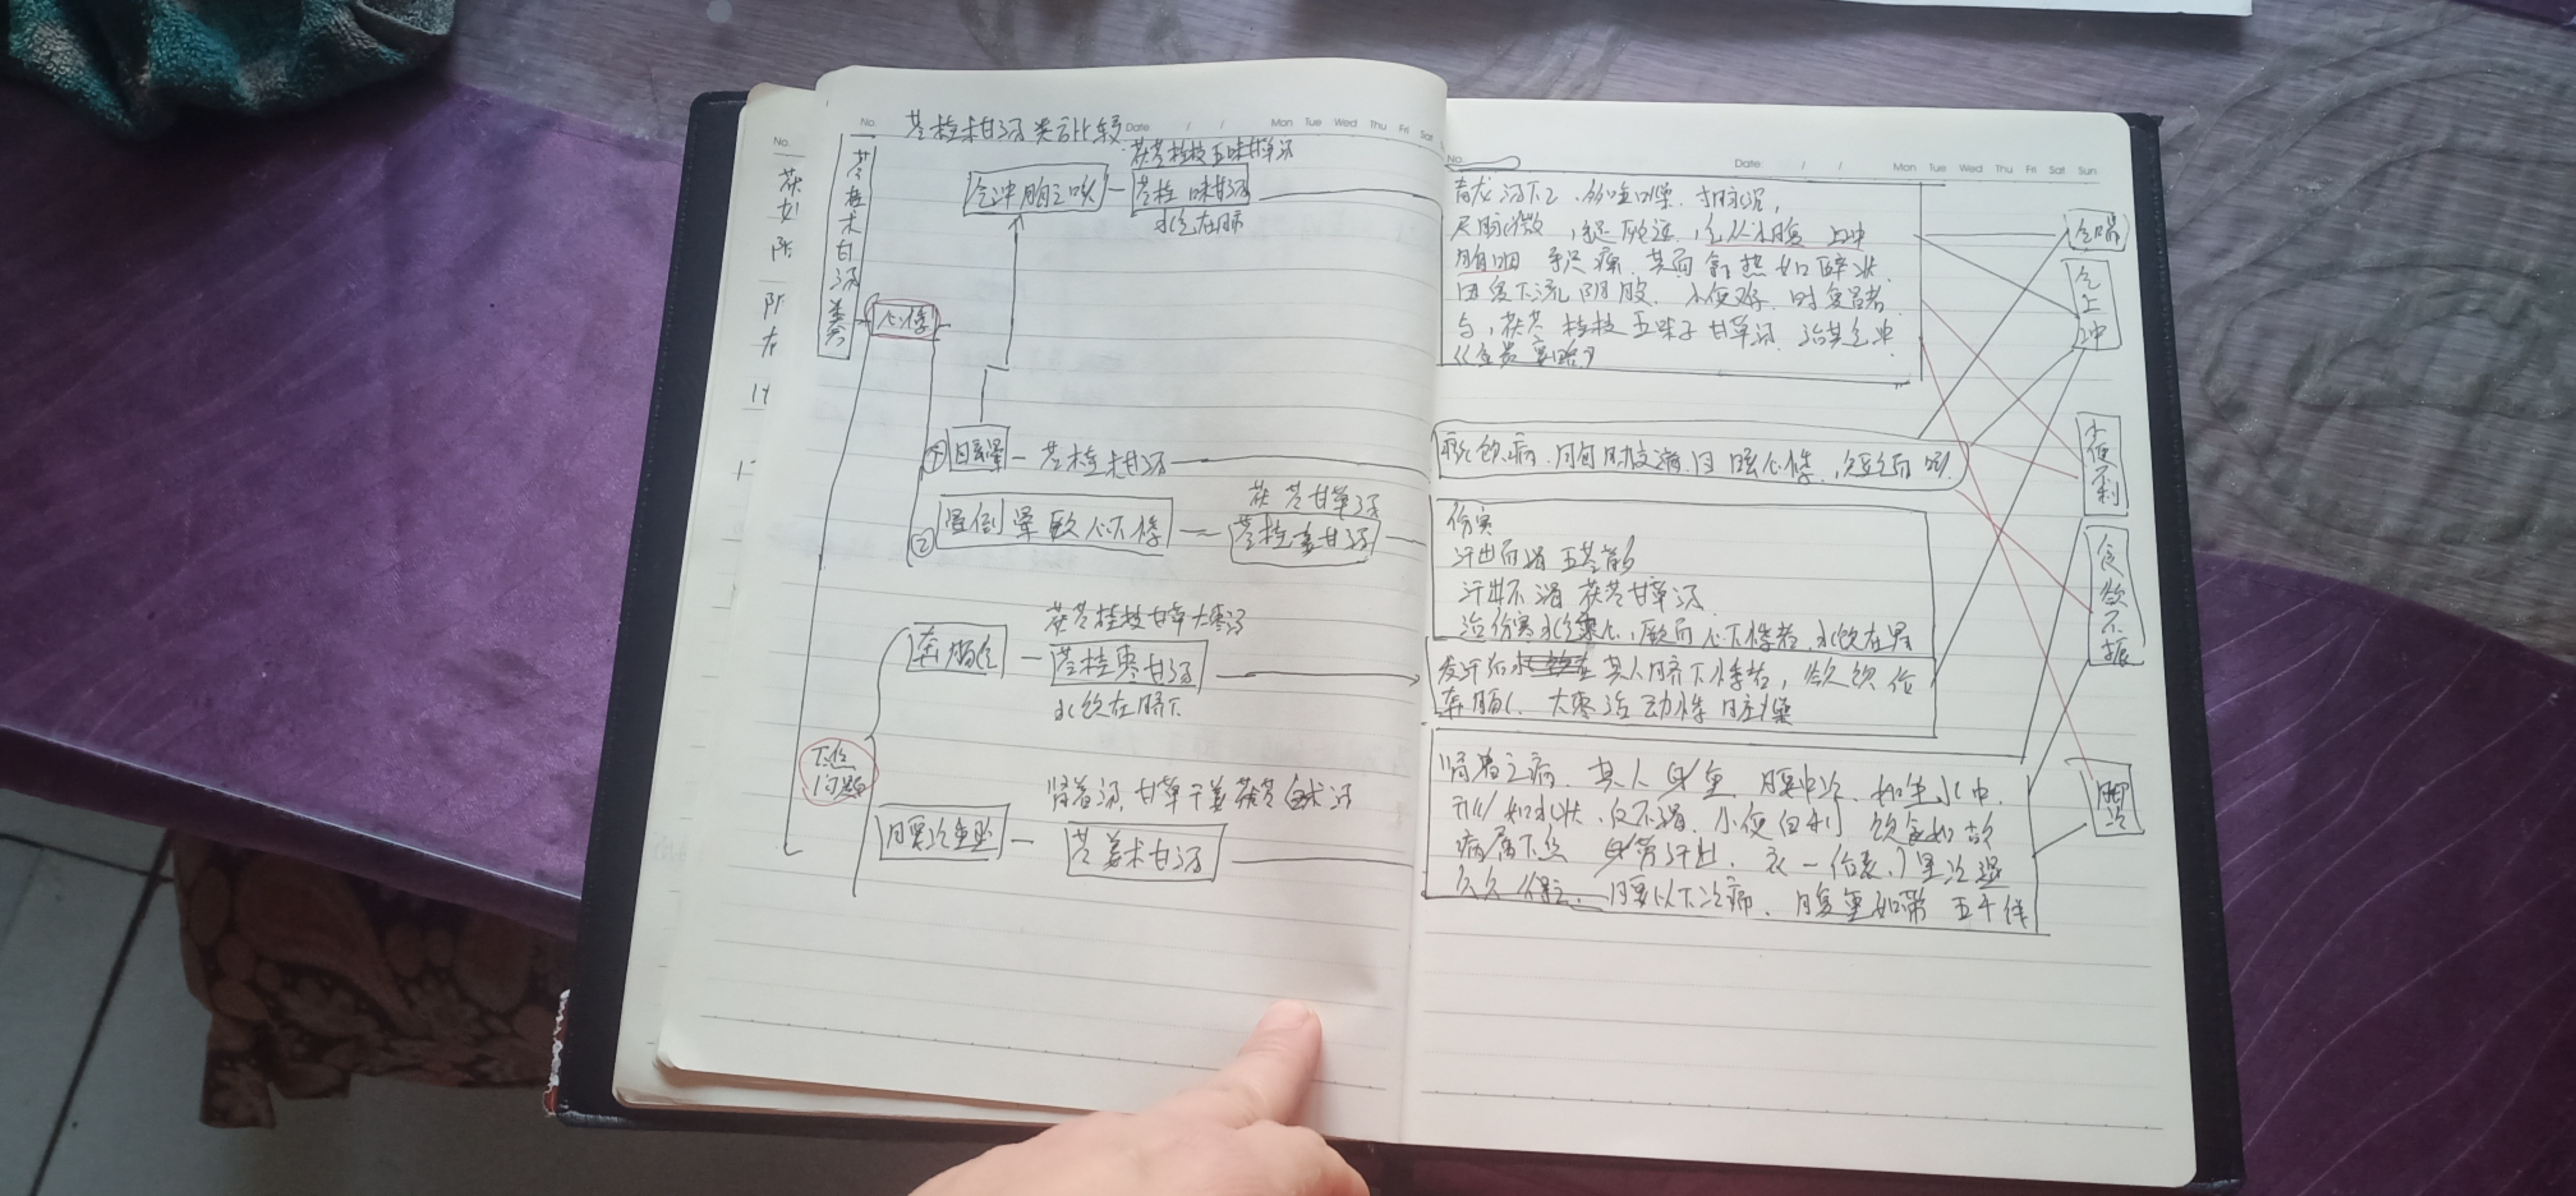 No.
苓桂术甘汤类比较
Date / /
Mon Tue Wed Thu Fri Sat
苓桂术甘汤类
心悸
气冲胸之咳
茯苓桂枝五味甘草汤
苓桂味甘汤
水气在肺
①
目眩晕
苓桂术甘汤
②
晕倒晕厥心下悸
茯苓甘草汤
苓桂姜甘汤
奔豚
茯苓桂枝甘草大枣汤
苓桂枣甘汤
水饮在脐下
下焦
问题
肾着汤 甘草干姜茯苓白术汤
腰冷重坠
苓姜术甘汤
No.
茯
No.
Date / /
Mon Tue Wed Thu Fri Sat Sun
青龙汤下已,多唾口燥,寸脉沉,
尺脉微,手足厥逆,气从小腹上冲
胸咽 手足痹,其面翕热如醉状
因复下流阴股,小便难,时复冒者
与,茯苓桂枝五味子甘草汤,治其气冲
《金匮要略》
痰饮病,胸胁支满,目眩心悸,短气而咳
伤寒
汗出而渴 五苓散
汗出不渴 茯苓甘草汤
治伤寒水气乘心,厥而心下悸者,水饮在胃
发汗后 其人脐下悸者,欲作
奔豚 大枣治动悸 脏躁
肾着之病,其人身重,腰中冷,如坐水中,
形如水状,仅不渴,小便自利,饮食如故
病属下焦 身劳汗出,衣一作表,里冷湿
久久得之,腰以下冷痛,腹重如带五千钱
气喘
气上冲
小便不利
食欲不振
脚冷